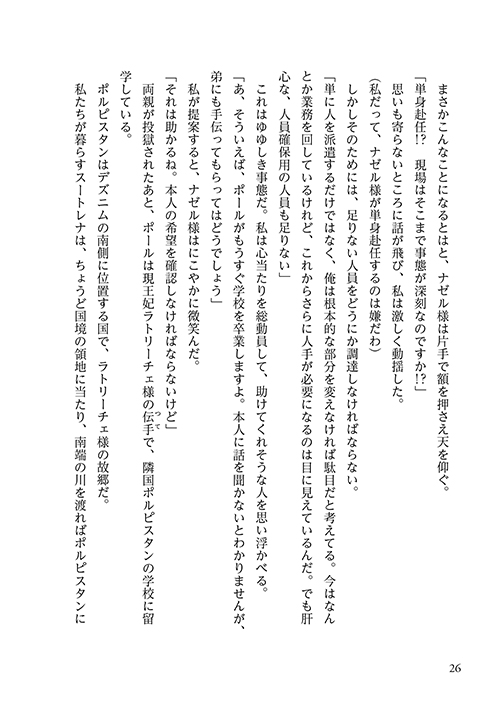 まさかこんなことになるとはと、ナゼル様は片手で額を押さえ天を仰ぐ。
「単身赴任!?　現場はそこまで事態が深刻なのですか!?」
思いも寄らないところに話が飛び、私は激しく動揺した。
(私だって、ナゼル様が単身赴任するのは嫌だわ)
しかしそのためには、足りない人員をどうにか調達しなければならない。
「単に人を派遣するだけではなく、俺は根本的な部分を変えなければ駄目だと考えてる。今はなん
とか業務を回しているけれど、これからさらに人手が必要になるのは目に見えているんだ。でも肝
心な、人員確保用の人員も足りない」
これはゆゆしき事態だ。私は心当たりを総動員して、助けてくれそうな人を思い浮かべる。
「あ、そういえば、ポールがもうすぐ学校を卒業しますよ。本人に話を聞かないとわかりませんが、
弟にも手伝ってもらってはどうでしょう」
私が提案すると、ナゼル様はにこやかに微笑んだ。
「それは助かるね。本人の希望を確認しなければならないけど」
両親が投獄されたあと、ポールは現王妃ラトリーチェ様の伝手で、隣国ポルピスタンの学校に留
つて
学している。
ポルピスタンはデズニムの南側に位置する国で、ラトリーチェ様の故郷だ。
私たちが暮らすスートレナは、ちょうど国境の領地に当たり、南端の川を渡ればポルピスタンに
26